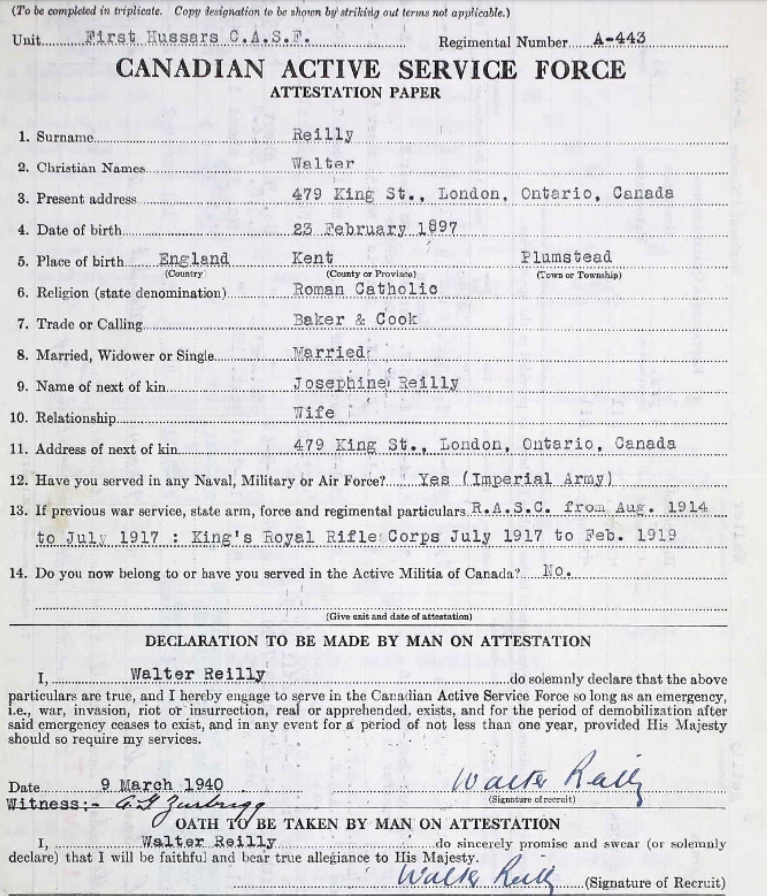 (To be completed in triplicate. Copy designation to be shown by striking out terms not applicable.)
Unit First Hussars C.A.S.F. Regimental Number A-443
CANADIAN ACTIVE SERVICE FORCE
ATTESTATION PAPER
1. Surname Reilly
2. Christian Names Walter
3. Present address 479 King St., London, Ontario, Canada
4. Date of birth 23 February 1897
5. Place of birth England Kent Plumstead
(Country) (County or Province) (Town or Township)
6. Religion (state denomination) Roman Catholic
7. Trade or Calling Baker & Cook
8. Married, Widower or Single Married
9. Name of next of kin Josephine Reilly
10. Relationship Wife
11. Address of next of kin 479 King St., London, Ontario, Canada
12. Have you served in any Naval, Military or Air Force? Yes (Imperial Army)
13. If previous war service, state arm, force and regimental particulars R.A.S.C. from Aug. 1914
to July 1917 : King's Royal Rifle Corps July 1917 to Feb. 1919
14. Do you now belong to or have you served in the Active Militia of Canada? No.
(Give unit and date of attestation)
DECLARATION TO BE MADE BY MAN ON ATTESTATION
I, Walter Reilly do solemnly declare that the above
particulars are true, and I hereby engage to serve in the Canadian Active Service Force so long as an emergency,
i.e., war, invasion, riot or insurrection, real or apprehended, exists, and for the period of demobilization after
said emergency ceases to exist, and in any event for a period of not less than one year, provided His Majesty
should so require my services.
Date 9 March 1940 Walter Reilly
(Signature of recruit)
Witness:-
OATH TO BE TAKEN BY MAN ON ATTESTATION
I, Walter Reilly do sincerely promise and swear (or solemnly
declare) that I will be faithful and bear true allegiance to His Majesty.
Walter Reilly (Signature of Recruit)